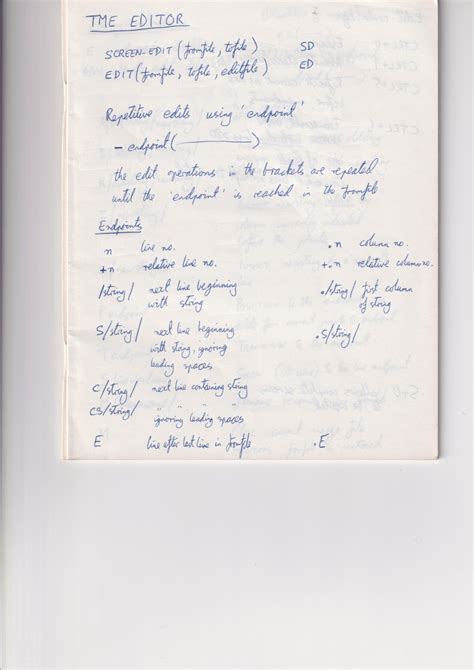 THE EDITOR
SCREEN-EDIT (fromfile, tofile) SD
EDIT (fromfile, tofile, editfile) ED
Repetitive edits using 'endpoint'
- endpoint ( ———— )
the edit operations in the brackets are repeated
until the 'endpoint' is reached in the fromfile
Endpoints
n line no. .n column no.
+n relative line no. +.n relative column no.
/string/ next line beginning ./string/ first column
with string of string
S/string/ next line beginning .S/string/
with string, ignoring
leading spaces
C/string/ next line containing string
CS/string/ " " "
ignoring leading spaces
E line after last line in fromfile .E